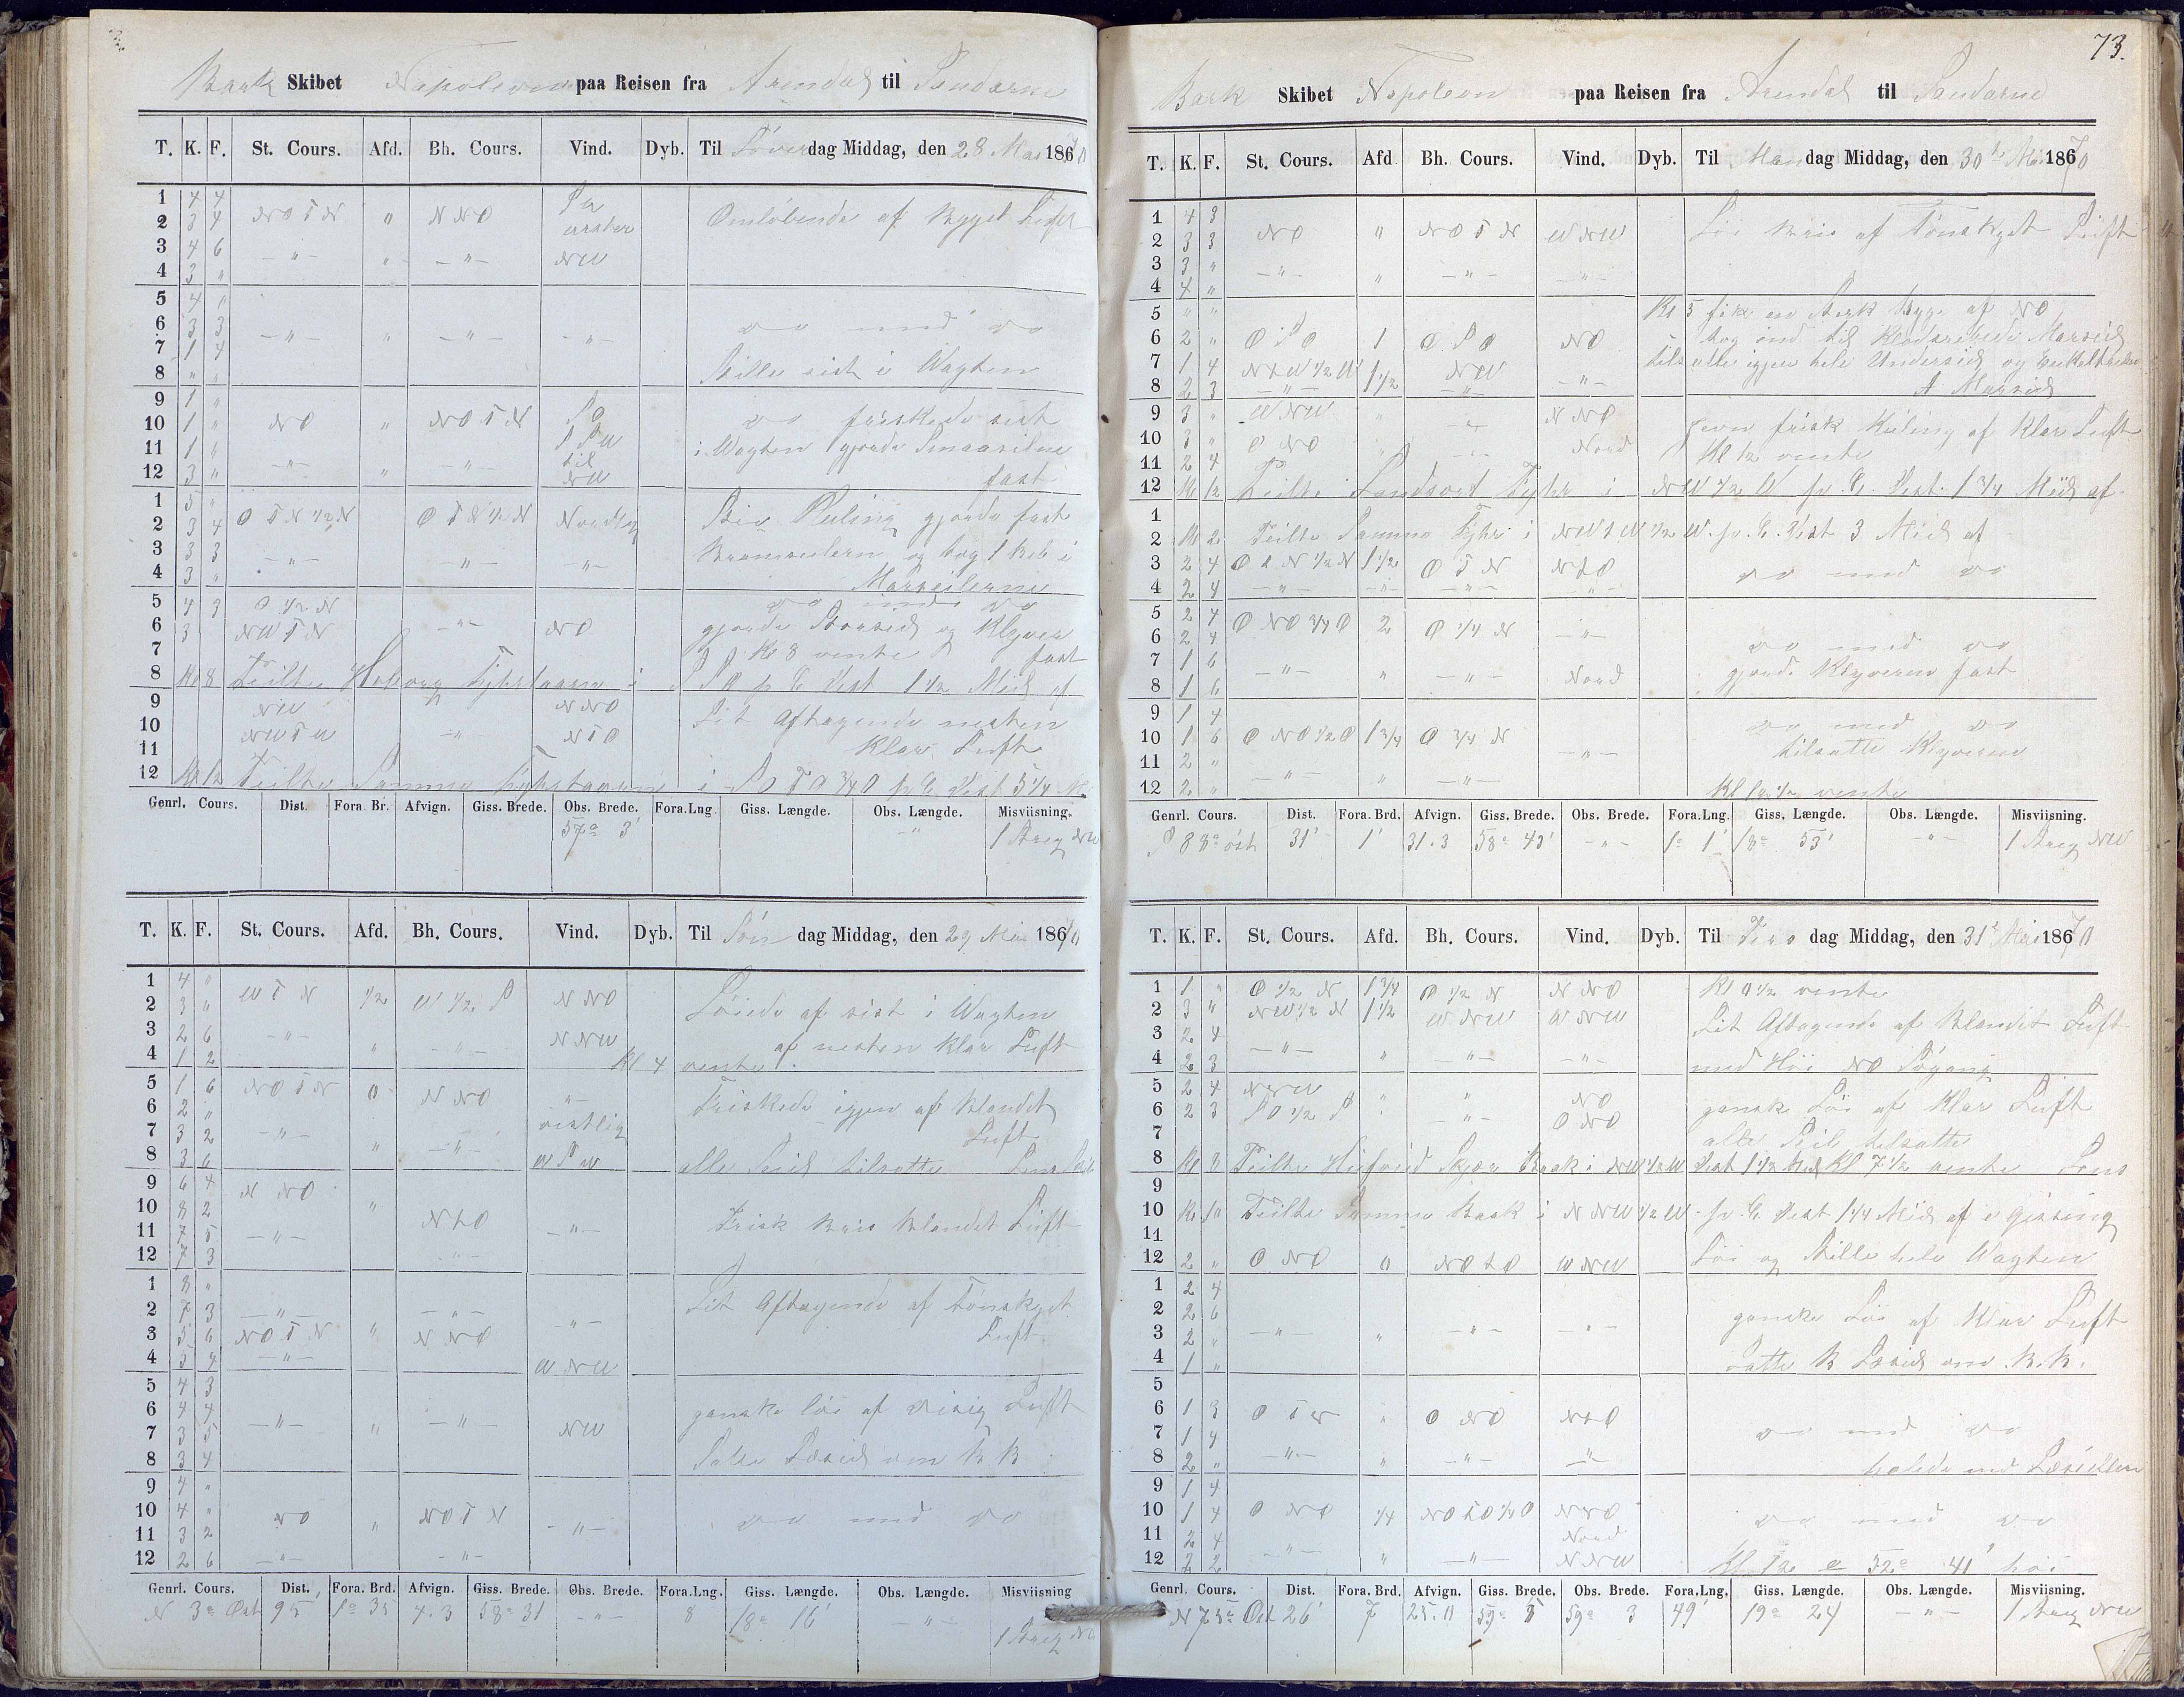 Bark Skibet Napoleon paa Reisen fra Arendal til Sandarne
T. K. F. St. Cours. Afd. Bh. Cours. Vind. Dyb. Til Löverdag Middag, den 28 Mai 1870
1 4 4
2 3 4 NOTN " NNO Omlöbende af Bygget Luft
3 4 6 -"- " -"- NW
4 3 "
5 4 0
6 3 3 -"- " -"- -"- do med do
7 1 4
8 " " Stille sist i Wagten
9 1 "
10 1 " NO " NOTN SO do friskede sist
11 1 " SSW i Wagten gjorde Smaaseilene
12 3 " -"- " -"- til NW fast
1 5 "
2 3 4 OTN 1/2 N OTN 1/2 N Nordlig Stiv Kuling gjorde fast
3 3 3 -"- -"- -"- Bramseilern og tog 1 Reb i
4 3 " Merseilerne
5 4 3 O 1/2 N do med do
6 3 NWTN -"- NO gjorde Storseil og Klyver
7 Kl 8 vente fast
8 Kl 8 Peilte Hoborg Fyhrtaarn i pr C Dist 1 1/2 Miil af
9 NW NNO
10 NWTW -"- NTO Lit Aftagende nesten
11 Klar Luft
12 Kl 12 Peilte Samme Fyhrtaarn i SOTO 3/4 O pr C Dist 5 1/4 M
Genrl. Cours. Dist. Fora. Br. Afvign. Giss. Brede. Obs. Brede. Fora.Lng. Giss. Længde. Obs. Længde. Misviisning.
57° 3' -"- 1 Streg NW
T. K. F. St. Cours. Afd. Bh. Cours. Vind. Dyb. Til Søndag Middag, den 29 Mai 1870
1 4 0
2 3 " WTN 1/2 W 1/2 S NNO Löiede af sist i Wagten
3 2 6 -"- " -"- NNW af nesten klar Luft
4 1 2 Kl 4 vente
5 1 6 NOTN 0 NNO -"-
6 2 " Friskede igjen af Blandet
7 3 2 -"- " -"- vestlig Luft
8 3 6 WSW alle Seil tilsatte
9 6 4 NNO
10 8 2 " Frisk Bris Blandet Luft
11 7 5 -"- NTO -"-
12 7 3 -"-
1 8 "
2 7 3 -"- -"- Lit Aftagende af Tönskyet
3 5 6 NOTN " NNO -"- Luft
4 5 4 -"- WNW
5 4 3
6 4 4 ganske löi af disig Luft
7 3 5 -"- " -"- NW
8 3 4 Læseil om B.B.
9 4 "
10 4 " NO " NOTN do med do
11 3 2 -"-
12 2 6 -"- -"-
Genrl. Cours. Dist. Fora. Brd. Afvign. Giss. Brede. Obs. Brede. Fora.Lng. Giss. Længde. Obs. Længde. Misviisning
N 3° Ost 95' 1° 35 4.3 58° 31 -"- 8 18° 16' -"- 1 Streg NW
73.
Bark Skibet Napoleon paa Reisen fra Arendal til Sandarne
T. K. F. St. Cours. Afd Bh. Cours. Vind. Dyb. Til Mandag Middag, den 30te Mai 1870
1 4 3
2 3 3 NO " NOTN WNW Löi Bris af Tönskyet Luft
3 3 "
4 4 " -"- " -"- -"-
5 " " Kl 5 fik en Sterk Byge af NO
6 2 " OSO 1 OSO NO tog ind til Klosrebede Merseil
7 1 4 NTW 1/2 W NW tilsatte igjen hele Underseil og Enkeltrebe
8 2 3 -"- 1 1/2 -"- -"- Merseil
9 3 " WNW " NNO
10 3 " ONO " -"- Nord Jevn frisk Kuling af Klar Luft
11 2 4 -"- Kl 12 vente
12 Kl 12 Peilte Landsort Fyhr i NW 1/2 W pr. C. Dist. 1 3/4 Miil af
1
2 Kl 2 Peilte Samme Fyhr i NWTW 1/2 W pr. C. Dist 3 Miil af
3 2 4 OTN 1/2 N 1 1/2 OTN NTO do med do
4 2 4 -"- -"- -"- -"-
5 2 4
6 2 4 ONO 3/4 O 2 O 1/4 N -"- do med do
7 1 6 -"- " -"- Nord gjorde Klyveren fast
8 1 6
9 1 4 do med do
10 1 6 ONO 1/2 O 1 3/4 O 3/4 N tilsatte Klyveren
11 2 " -"-
12 2 " -"- " -"- Kl 12 1/2 vente
Genrl. Cours. Dist. Fora. Brd. Afvign. Giss. Brede. Obs. Brede. Fora.Lng. Giss. Længde. Obs. Længde. Misviisning.
S 88° öst 31' 1' 31.3 58° 43' -"- 1° 1' 18° 53' -"- 1 Streg NW
T. K. F. St. Cours. Afd. Bh. Cours. Vind. Dyb. Til Tirsdag Middag, den 31te Mai 1870
1 1 " O 1/2 N 1 3/4 O 1/2 N NNO Kl 0 1/2 vente
2 3 " NW 1/2 N 1 1/2 WNW WNW Lit Aftagende af Blandet Luft
3 2 4
4 2 3 -"- " -"- -"- med Höi NO Sögang
5 2 4 " " NO
6 2 3 SO 1/2 S " -"- ONO ganske Löi af Klar Luft
7 alle Seil tilsatte
8 Kl 8 Peilte Skjær Baak i NW 1/2 W Dist 1 1/2 Miil Kl 7 1/2 vente
9
10 Kl 10 Peilte Samme Baak i NNW 1/2 W pr. C. Dist 1 1/4 Miil af e gissing
11
12 2 " ONO 0 NOTO WNW Löi og Stille hele Wagten
1 2 4
2 2 6 ganske Löi af Klar Luft
3 2 " -"- " -"- -"-
4 1 " satte B Læseil om B.B.
5
6 1 3 " ONO NTO
7 1 4 do med do
8 2 " -"- " -"- -"- halede ind Læseilene
9 1 4
10 1 4 ONO 1/4 NOTO 1/4 O NNO do med do
11 2 4 -"- Nord
12 2 2 " -"- NNW Kl 12 32° 41' höi
Genrl. Cours. Dist. Fora. Brd. Afvign. Giss. Brede. Obs. Brede. Fora.Lng. Giss. Længde. Obs. Længde. Misviisning.
N 75° Ost 26' 7 25.0 59° 59° 3 49' 19° 24 -"- 1 Streg NW